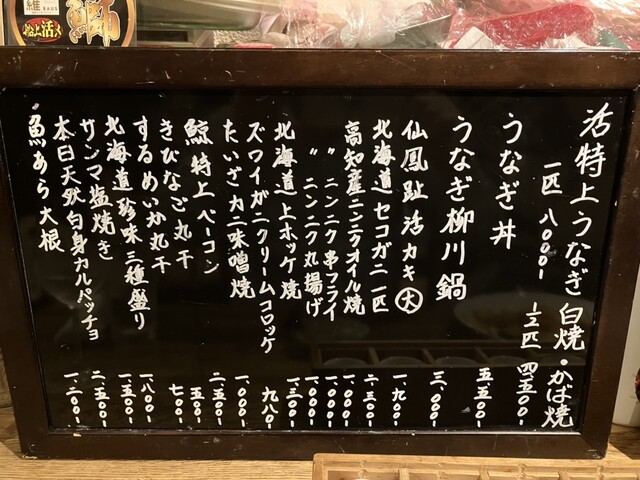 維
船上活〆
鰤
活特上うなぎ 白焼・かば焼
一匹 八〇〇〇- ½匹 四、五〇〇-
うなぎ丼 五、五〇〇-
うなぎ柳川鍋 三、〇〇〇-
仙鳳趾活カキ大 一、九〇〇-
北海道セコガニ一匹 二、三〇〇-
高知産ニンニクオイル焼 一、〇〇〇-
〃 ニンニク串フライ 一、〇〇〇-
〃 ニンニク丸揚げ 一、〇〇〇-
北海道上ホッケ焼 一、三〇〇-
ズワイガニクリームコロッケ 九八〇-
たいざカニ味噌焼 一、〇〇〇-
鯨特上ベーコン 二、五〇〇-
きびなご丸干 五五〇-
するめいか丸干 七〇〇-
北海道珍味三種盛り 一、八〇〇-
サンマ塩焼き 一、五〇〇-
本日天然白身カルパッチョ 二、五〇〇-
魚あら大根 一、二〇〇-